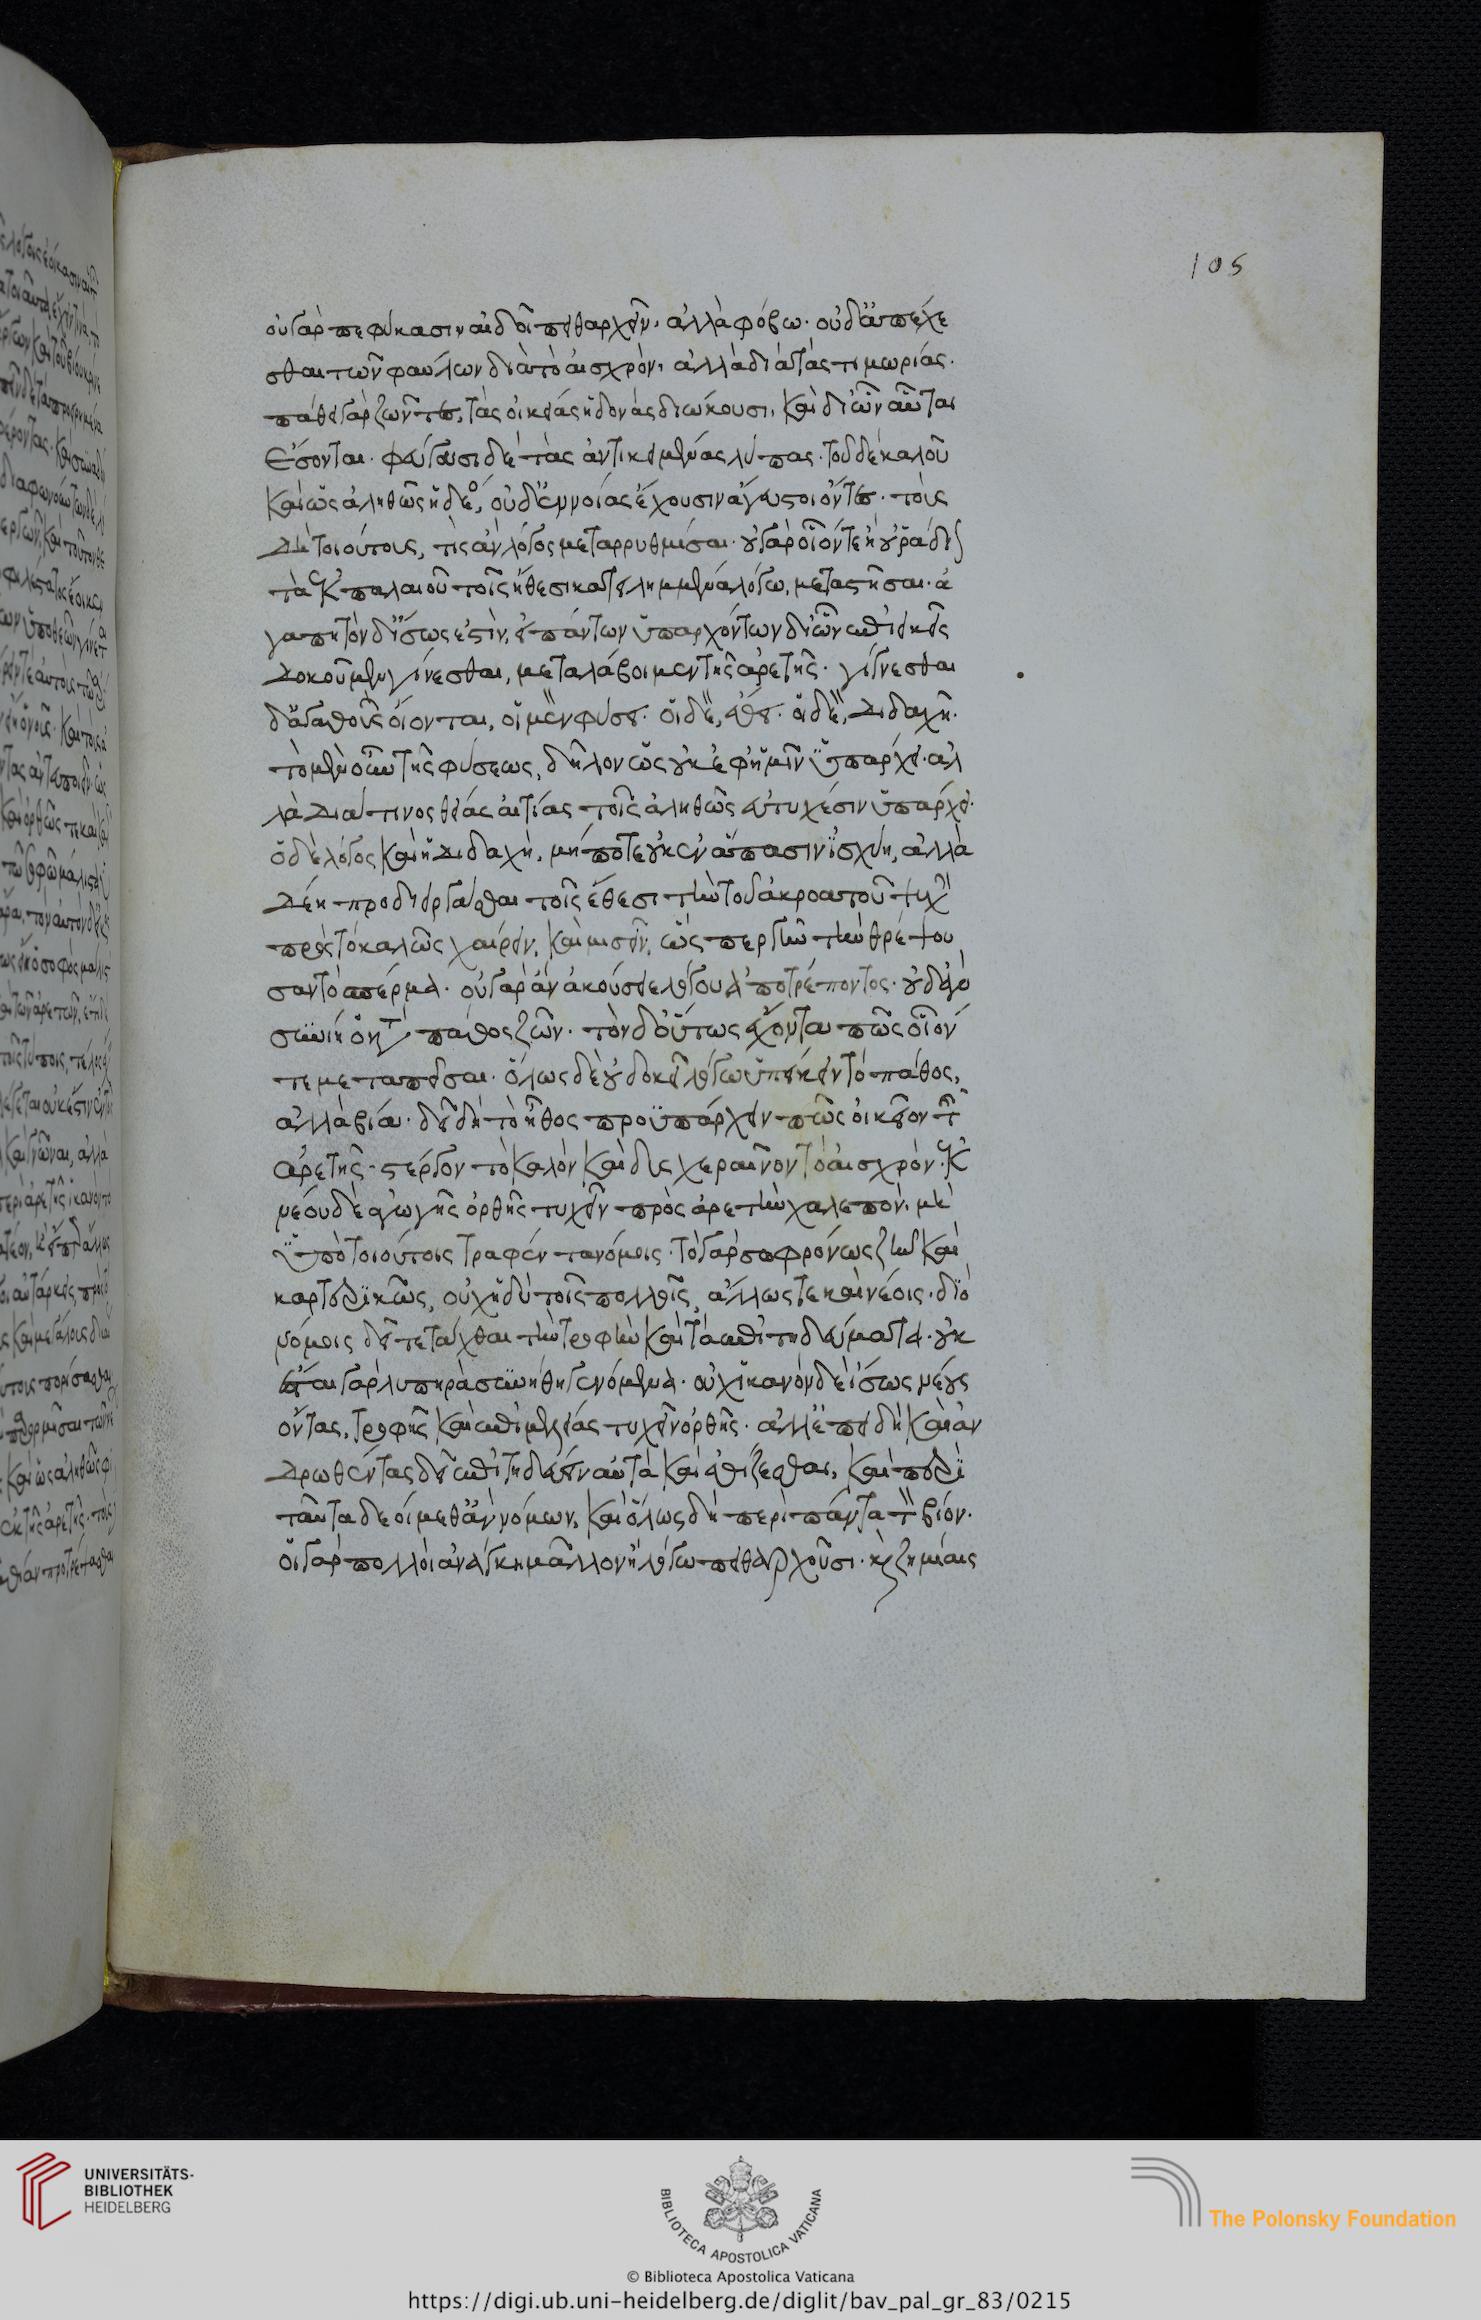 105
οὐ γὰρ πεφύκασιν αἰδοῖ πειθαρχεῖν, ἀλλὰ φόβω· οὐδ' ἀπέχε
σθαι τῶν φαύλων διὰ τὸ αἰσχρὸν, ἀλλὰ διὰ τὰς τιμωρίας·
πάθει γὰρ ζῶντες, τὰς οἰκείας ἡδονὰς διώκουσι, καὶ δι' ὧν αὗται
ἔσονται· φεύγουσι δὲ τὰς ἀντικειμένας λύπας· τοῦ δὲ καλοῦ
καὶ ὡς ἀληθῶς ἡδέος, οὐδ' ἔννοιας ἔχουσιν ἄγευστοι ὄντες· τοὺς
δὴ τοιούτους, τίς ἂν λόγος μεταρρυθμίσαι· οὐ γὰρ οἷόν τε ἢ οὐ ῥάδιον
τὰ ἐκ παλαιοῦ τοῖς ἤθεσι κατειλημμένα λόγω, μεταστῆσαι· ἀ
γαπητὸν δ' ἴσως ἐστὶν, εἰ πάντων ὑπαρχόντων δι' ὧν ἐπιεικεῖς
δοκοῦμεν γίνεσθαι, μεταλάβοιμεν τῆς ἀρετῆς· γίγνεσθαι
δ' ἀγαθοὺς οἴονται, οἱ μὲν φύσει· οἱ δὲ, ἔθει· οἱ δὲ, διδαχῆ·
τὸ μὲν οὖν τῆς φύσεως, δῆλον ὡς οὐκ ἐφ' ἡμῖν ὑπάρχει· ἀλ
λὰ διά τινος θείας αἰτίας τοῖς ἀληθῶς εὐτυχέσιν ὑπάρχει·
ὁ δὲ λόγος καὶ ἡ διδαχὴ, μή ποτε οὐκ ἐν ἅπασιν ἰσχύη, ἀλλὰ
δέη προδιειργάσθαι τοῖς ἔθεσι τὴν τοῦ ἀκροατοῦ ψυχὴν
πρὸς τὸ καλῶς χαίρειν, καὶ μισεῖν, ὥσπερ γῆν τὴν θρέψου
σαν τὸ σπέρμα· οὐ γὰρ ἂν ἀκούσειε λόγου ἀποτρέποντος· οὐδ' αὖ
συνείη ὁ κατὰ πάθος ζῶν· τὸν δ' οὕτως ἔχοντα πῶς οἷόν
τε μεταπεῖσαι· ὅλως δὲ οὐ δοκεῖ λόγω ὑπείκειν τὸ πάθος,
ἀλλὰ βία· δεῖ δὴ τὸ ἦθος προϋπάρχειν πῶς οἰκεῖον τῆς
ἀρετῆς· στέργον τὸ καλὸν καὶ δυσχεραῖνον τὸ αἰσχρόν· ἐκ
νέου δὲ ἀγωγῆς ὀρθῆς τυχεῖν πρὸς ἀρετὴν χαλεπὸν, μὴ
ὑπὸ τοιούτοις τραφέντα νόμοις· τὸ γὰρ σωφρόνως ζῆν καὶ
καρτερικῶς, οὐχ ἡδὺ τοῖς πολλοῖς, ἄλλως τε καὶ νέοις· διὸ
νόμοις δεῖ τετάχθαι τὴν τροφὴν καὶ τὰ ἐπιτηδεύματα· οὐκ
ἔσται γὰρ λυπηρὰ συνήθη γενόμενα· οὐχ ἱκανὸν δὲ ἴσως νέους
ὄντας, τροφῆς καὶ ἐπιμελείας τυχεῖν ὀρθῆς· ἀλλ' ἐπειδὴ καὶ ἀν
δρωθέντας δεῖ ἐπιτηδεύειν αὐτὰ καὶ ἐθίζεσθαι, καὶ περὶ
ταῦτα δεοίμεθ' ἂν νόμων, καὶ ὅλως δὴ περὶ πάντα τὸν βίον·
οἱ γὰρ πολλοὶ ἀνάγκη μᾶλλον ἢ λόγω πειθαρχοῦσι· καὶ ζημίαις
UNIVERSITÄTS-
BIBLIOTHEK
HEIDELBERG
BIBLIOTECA APOSTOLICA VATICANA
The Polonsky Foundation
© Biblioteca Apostolica Vaticana
https://digi.ub.uni-heidelberg.de/diglit/bav_pal_gr_83/0215